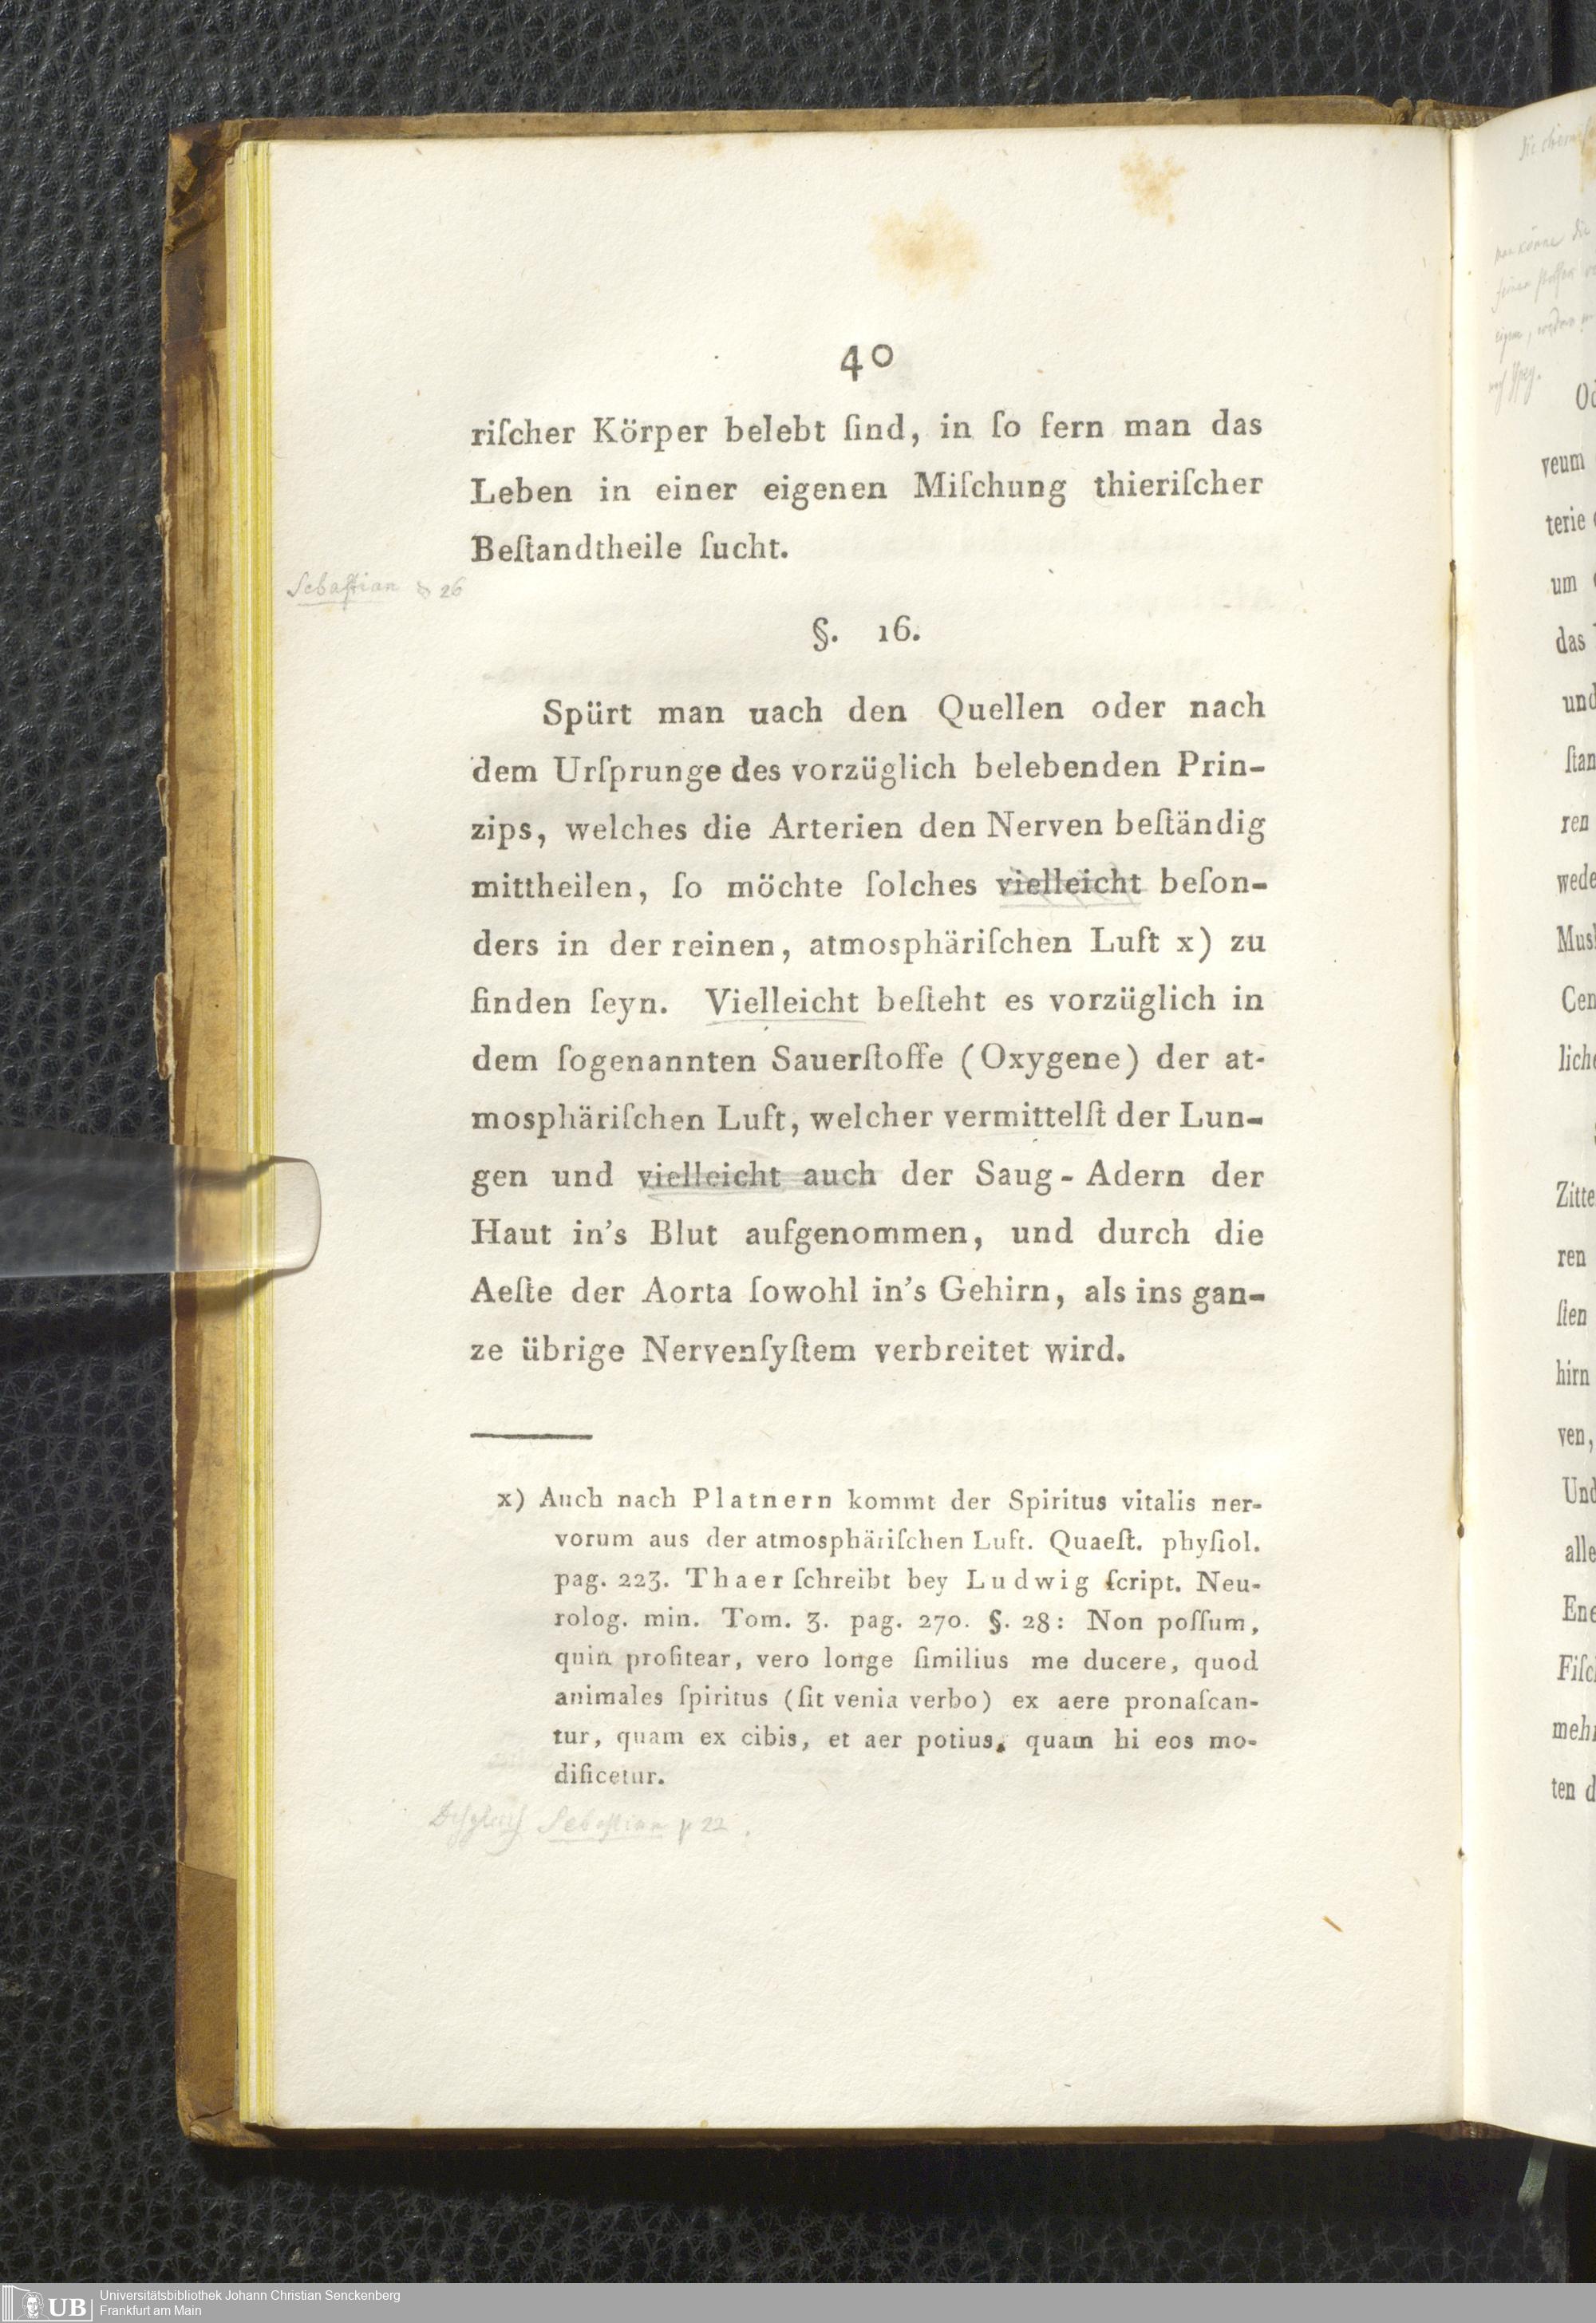 40
riſcher Körper belebt ſind, in ſo fern man das
Leben in einer eigenen Miſchung thieriſcher
Beſtandtheile ſucht.
Sebastian 26
§. 16.
Spürt man uach den Quellen oder nach
dem Urſprunge des vorzüglich belebenden Prin-
zips, welches die Arterien den Nerven beſtändig
mittheilen, ſo möchte ſolches vielleicht beſon-
ders in der reinen, atmosphäriſchen Luft x) zu
finden ſeyn. Vielleicht beſteht es vorzüglich in
dem ſogenannten Sauerſtoffe (Oxygene) der at-
mosphäriſchen Luft, welcher vermittelſt der Lun-
gen und vielleicht auch der Saug-Adern der
Haut in's Blut aufgenommen, und durch die
Aeſte der Aorta ſowohl in's Gehirn, als ins gan-
ze übrige Nervenſyſtem verbreitet wird.
x) Auch nach Platnern kommt der Spiritus vitalis ner-
vorum aus der atmosphäriſchen Luft. Quaeſt. phyſiol.
pag. 223. Thaer ſchreibt bey Ludwig ſcript. Neu-
rolog. min. Tom. 3. pag. 270. §. 28: Non poſſum,
quin profitear, vero longe ſimilius me ducere, quod
animales ſpiritus (ſit venia verbo) ex aere pronaſcan-
tur, quam ex cibis, et aer potius, quam hi eos mo-
dificetur.
Sebastian p 22.
veum
terie
um
das
und
ſtan
ren
wede
Cen
Zitte
ren
ſten
hirn
ven,
Und
alle
Ene
ten d
UB
Universitätsbibliothek Johann Christian Senckenberg
Frankfurt am Main